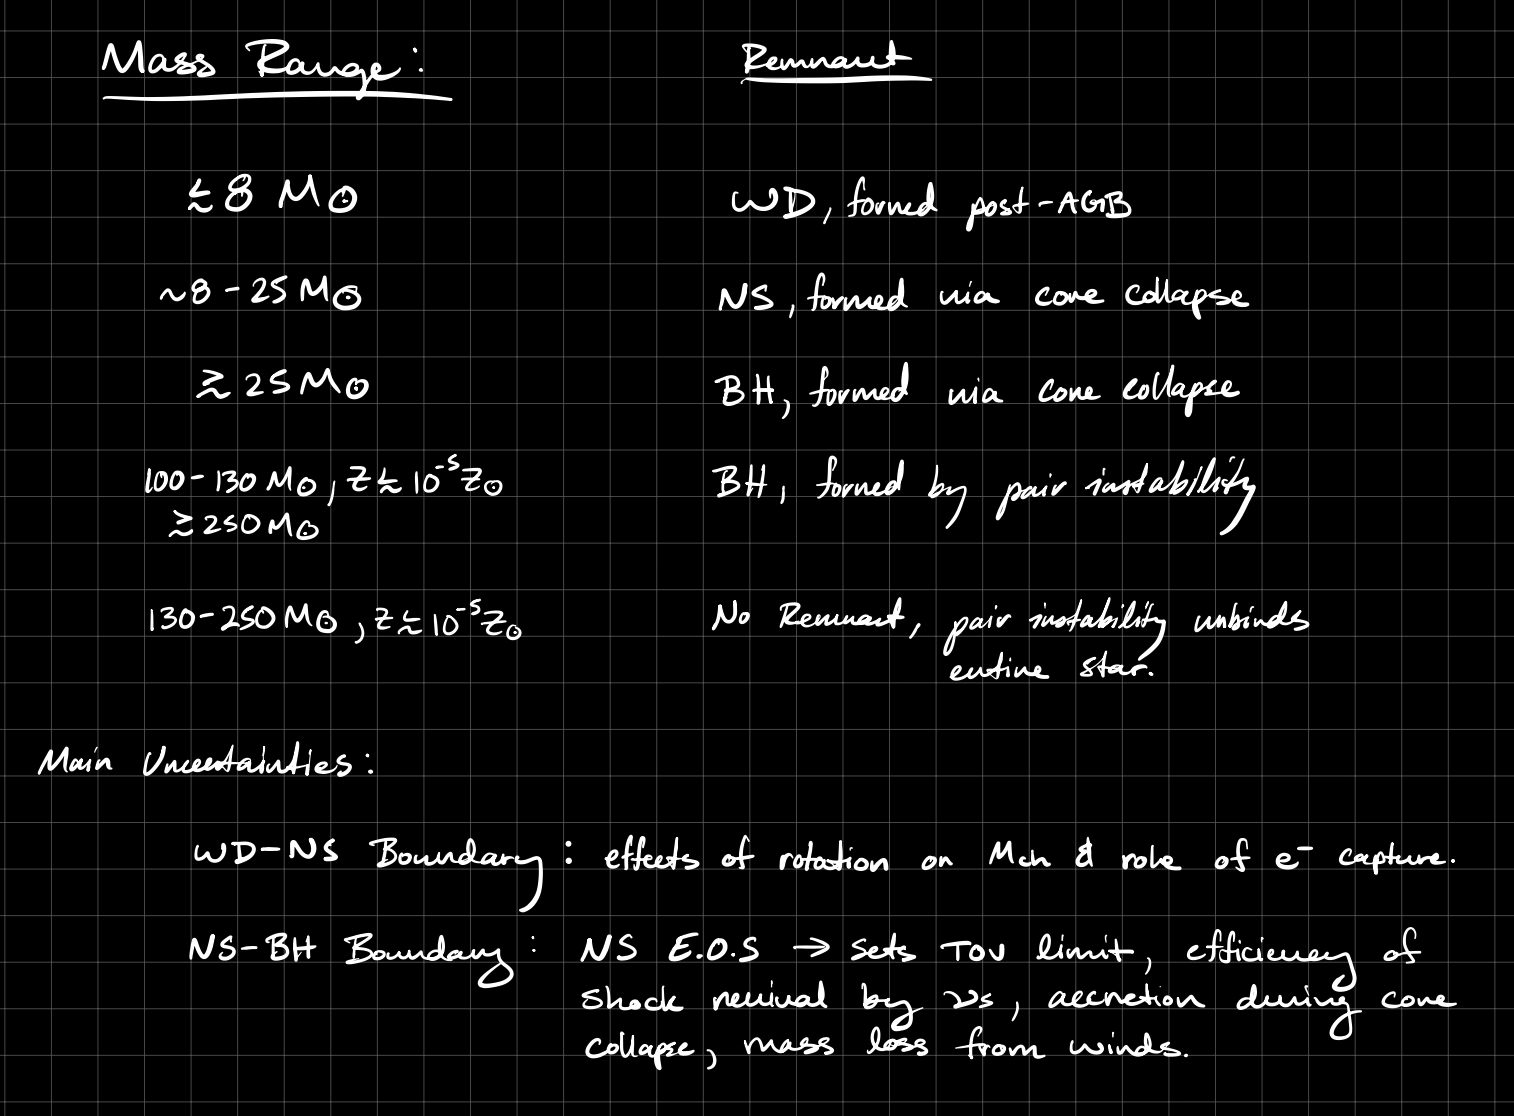 Mass Range: Remnant
≲ 8 M⊙ WD, formed post-AGB
~8-25 M⊙ NS, formed via core collapse
≳ 25 M⊙ BH, formed via core collapse
100-130 M⊙, Z ≲ 10⁻⁵ Z⊙ BH, formed by pair instability
≳ 250 M⊙
130-250 M⊙, Z ≲ 10⁻⁵ Z⊙ No Remnant, pair instability unbinds
entire star.
Main Uncertainties:
WD-NS Boundary: effects of rotation on Mch & role of e⁻ capture.
NS-BH Boundary: NS E.O.S → sets TOV limit, efficiency of
shock revival by νs, accretion during core
collapse, mass loss from winds.